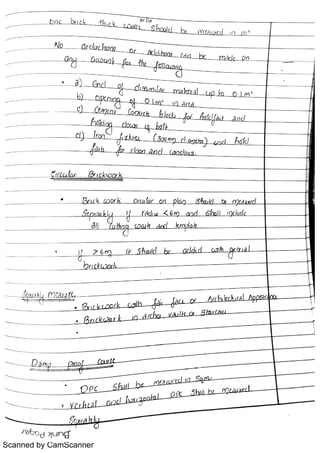 One brick thick walls should be measured in m²
No deductions or additions can be made on
any account for the following
• a) End of dissimilar material up to 0.1m²
b) opening of 0.1m² in area
c) Cement concrete blocks for holdfast and
holding down of bolts
d) Iron fixtures (300mm diameter) and hold
fasts for doors and windows.
Circular Brickwork
• Brick work circular on plan should be measured
Separately if radius <6m and shall include
all cutting work and template
• if >6m it should be added with general
brickwork
• Brickwork with fair face or Architectural Appearance
• Brickwork in arches, vaults or
Damp proof course
• DPC shall be measured in sqm.
• Vertical and horizontal DPC shall be measured
Separately
Scanned by CamScanner